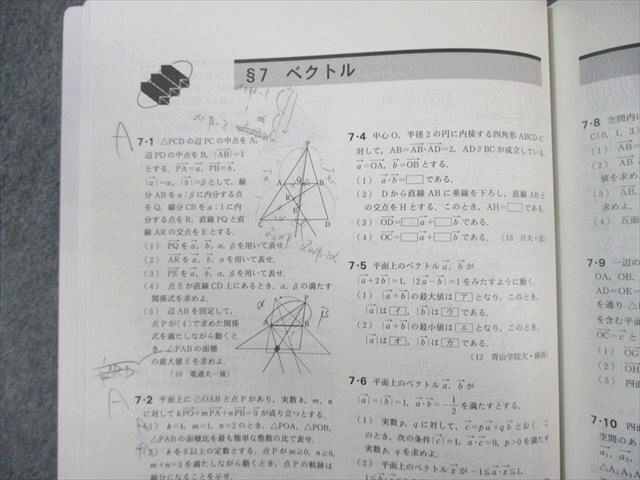 §7 ベクトル
A
7・1 △PCDの辺PCの中点をA,
辺PDの中点をB, |AB|=1
とする. PA=a, PB=b,
|a|=α, |b|=βとして, 線
分ABをα:βに内分する点
をQ, 線分CBをα:1に内
分する点をR, 直線PQと直
線ARの交点をEとする.
(1) PQをa, b, α, βを用いて表せ.
(2) ARをa, b, αを用いて表せ.
(3) PEをa, b, α, βを用いて表せ.
(4) 点Eが直線CD上にあるとき, α, βの満たす
関係式を求めよ.
(5) 辺ABを固定して,
点Pが(4)で求めた関係
式を満たしながら動くと
き, △PABの面積
の最大値Sを求めよ.
(16 電通大-後)
A
7・2 平面上に△OABと点Pがあり, 実数k, m, n
に対してkPO+mPA+nPB=0が成り立つとする.
(1) k=4, m=1, n=2のとき, △POA, △POB,
△PABの面積比を最も簡単な整数の比で表せ.
(2) kを0以上の定数とする. 点Pがm≧0, n≧0,
m+n=3を満たしながら動くとき, 点Pの軌跡は
線分になることを示せ.
7・4 中心O, 半径2の円に内接する四角形ABCDに
対して, AB=AB・AD=2, AD∥BCが成立している.
a=OA, b=OBとする.
(1) a・b=□である.
(2) Dから直線ABに垂線を下ろし, 直線ABと
の交点をHとする. このとき, AH=□である.
(3) OD=□a+□bである.
(4) OC=□a+□bである. (13 日大・医)
7・5 平面上のベクトルa, bが
|a+2b|=1, |2a-b|=1をみたすように動く.
(1) |a+b|の最大値はアとなり, このとき,
|a|はイ, |b|はウである.
(2) |a+b|の最小値はエとなり, このとき,
|a|はオ, |b|はカである.
(12 青山学院大・
7・6 平面上のベクトルa, bが
|a|=|b|=1, a・b=-1/2を満たすとする.
(1) 実数p, qに対して, c=pa+qbとおく. こ
のとき, 次の条件|c|=1, a・c=0, p>0を満たす
実数p, qを求めよ.
(2) 平面上のベクトルxが-1≦a・x≦1,
7・8 空間内に
C(0, 1, 3)
(1) AB=
(2) AB
値を求め
(3) AB,
求めよ.
(4) 五面
7・9 一辺の
OA, OB,
AD=OE=
を通り
を含む平面
OC=cと
(1) OC
(2) OC
(3) 四角
7・10 四
空間のあ
a₁, a₂,
△A₁A₂A